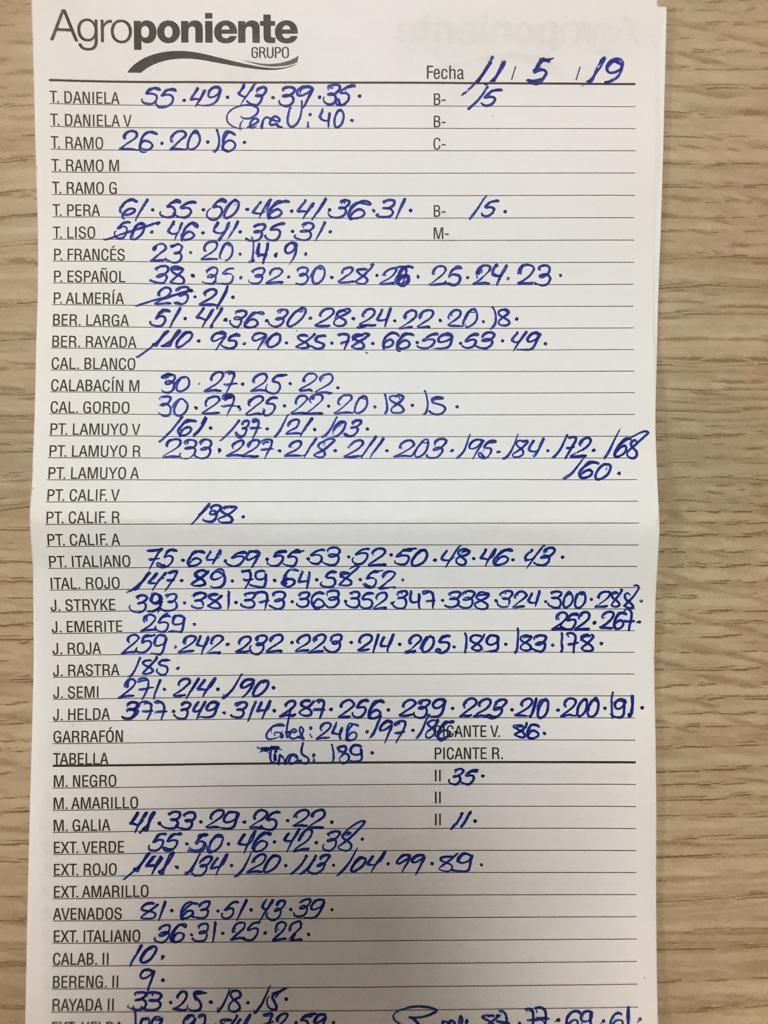 Agroponiente
GRUPO
Fecha 11 / 5 / 19
T. DANIELA 55·49·43·39·35· B- 15
T. DANIELA V Pera V: 40· B-
T. RAMO 26·20·16· C-
T. RAMO M
T. RAMO G
T. PERA 61·55·50·46·41·36·31· B- 15·
T. LISO 50·46·41·35·31· M-
P. FRANCÉS 23·20·14·9·
P. ESPAÑOL 38·35·32·30·28·26·25·24·23·
P. ALMERÍA 23·21·
BER. LARGA 51·41·36·30·28·24·22·20·18·
BER. RAYADA 110·95·90·85·78·66·59·53·49·
CAL. BLANCO
CALABACÍN M 30·27·25·22·
CAL. GORDO 30·27·25·22·20·18·15·
PT. LAMUYO V 161·137·121·103·
PT. LAMUYO R 233·227·218·211·203·195·184·172·168
PT. LAMUYO A 160·
PT. CALIF. V
PT. CALIF. R 198·
PT. CALIF. A
PT. ITALIANO 75·64·59·55·53·52·50·48·46·43·
ITAL. ROJO 147·89·79·64·58·52·
J. STRYKE 393·381·373·363·352·347·338·324·300·288·
J. EMERITE 259· 252·267·
J. ROJA 259·242·232·223·214·205·189·183·178·
J. RASTRA 185·
J. SEMI 271·214·190·
J. HELDA 377·349·314·287·256·239·223·210·200·191·
GARRAFÓN 246·197·186· PICANTE V. 86·
TABELLA 189· PICANTE R.
M. NEGRO II 35·
M. AMARILLO II
M. GALIA 41·33·29·25·22· II 11·
EXT. VERDE 55·50·46·42·38·
EXT. ROJO 141·134·120·113·104·99·89·
EXT. AMARILLO
AVENADOS 81·63·51·43·39·
EXT. ITALIANO 36·31·25·22·
CALAB. II 10·
BERENG. II 9·
RAYADA II 33·25·18·15·
EXT. HELDA 72·59· 87·77·69·61·